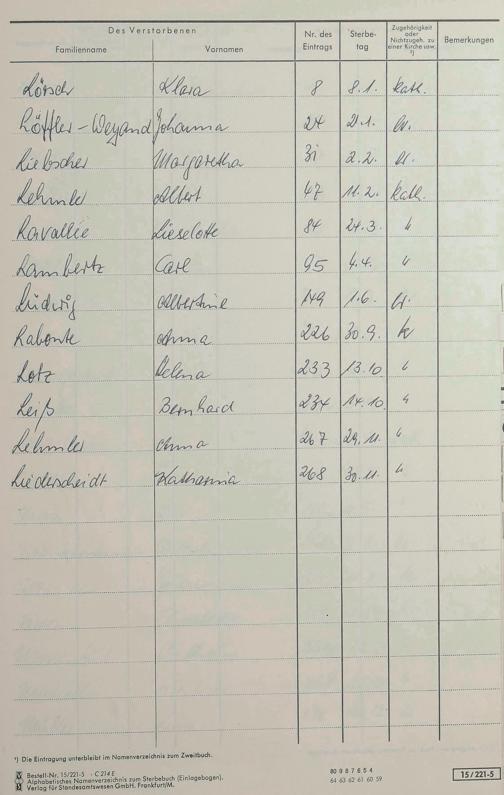 Des Verstorbenen
Familienname Vornamen Nr. des Eintrags Sterbe-tag Zugehörigkeit oder Nichtzugeh. zu einer Kirche usw. ¹) Bemerkungen
Lörsch Klara 8 8.1. kath.
Löffler-Weyand Johanna 24 21.1. ev.
Liebscher Margaretha 31 2.2. ev.
Lehmler Albert 47 11.2. kath.
Lavallée Lieselotte 84 24.3. "
Lambertz Carl 95 4.4. "
Ludwig Albertine 149 1.6. ev.
Labonte Anna 226 30.9. k
Lotz Helena 233 13.10. "
Leiß Bernhard 234 14.10. "
Lehmler Anna 267 29.11. "
Liederscheidt Katharina 268 30.11. "
¹) Die Eintragung unterbleibt im Namenverzeichnis zum Zweitbuch.
Bestell-Nr. 15/221-5 · C 214 E
Alphabetisches Namenverzeichnis zum Sterbebuch (Einlagebogen).
Verlag für Standesamtswesen GmbH. Frankfurt/M.
80 9 8 7 6 5 4
64 63 62 61 60 59
15/221-5